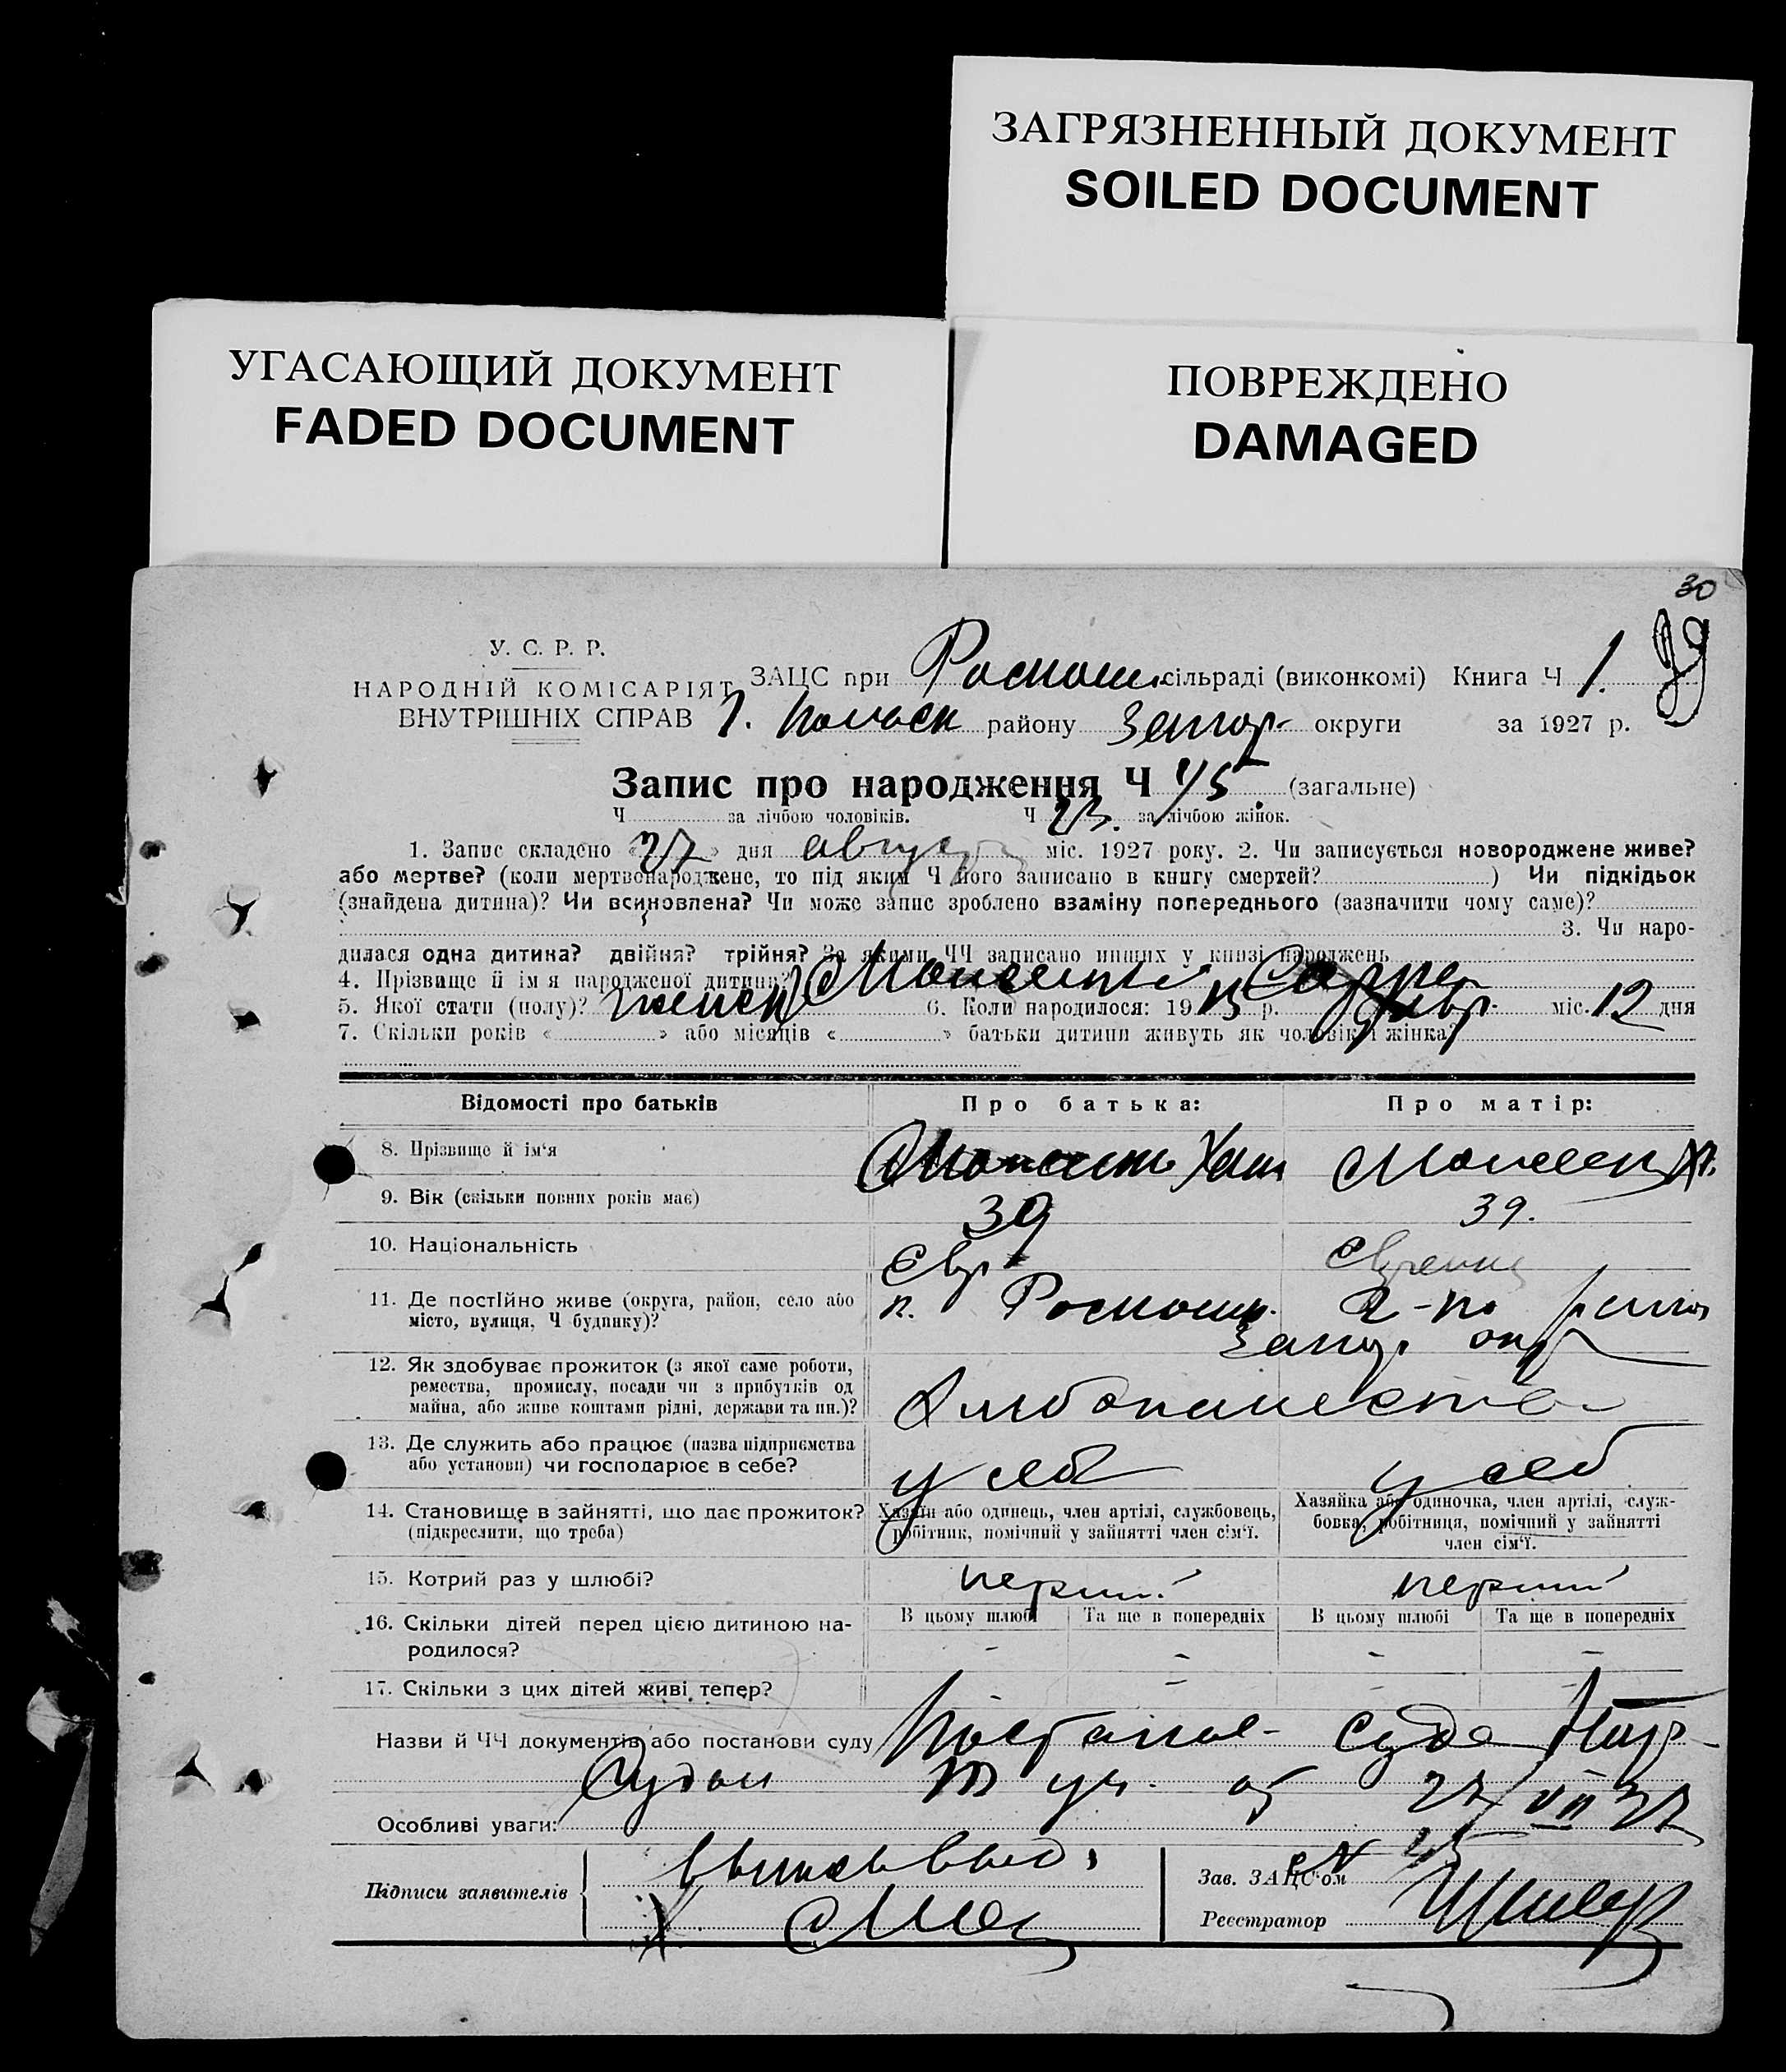 ЗАГРЯЗНЕННЫЙ ДОКУМЕНТ
SOILED DOCUMENT
УГАСАЮЩИЙ ДОКУМЕНТ
FADED DOCUMENT
ПОВРЕЖДЕНО
DAMAGED
30
У. С. Р. Р.
НАРОДНІЙ КОМІСАРІЯТ
ВНУТРІШНІХ СПРАВ
ЗАЦС при сільраді (виконкомі) Книга Ч 1.
району Запор. округи за 1927 р.
Запис про народження Ч 45. (загальне)
Ч за лічбою чоловіків. Ч 23. за лічбою жінок.
1. Запис складено «27» дня августа міс. 1927 року. 2. Чи записується новороджене живе?
або мертве? (коли мертвонароджене, то під яким Ч його записано в книгу смертей? ) Чи підкідьок
(знайдена дитина)? Чи всиновлена? Чи може запис зроблено взаміну попереднього (зазначити чому саме)?
3. Чи наро-
дилася одна дитина? двійня? трійня? За якими ЧЧ записано инших у книзі народжень
4. Прізвище й ім'я народженої дитини? Сарра
5. Якої стати (полу)? женск 6. Коли народилося: 19 р. міс. 12 дня
7. Скільки років « » або місяців « » батьки дитини живуть як чоловік і жінка?
Відомості про батьків
Про батька:
Про матір:
8. Прізвище й ім'я
9. Вік (скільки повних років має) 39 39.
10. Національність Евр Еврейка
11. Де постійно живе (округа, район, село або
місто, вулиця, Ч будинку)?
Запор. окр
12. Як здобуває прожиток (з якої саме роботи,
ремества, промислу, посади чи з прибутків од
майна, або живе коштами рідні, держави та ин.)?
Хлебопашество
13. Де служить або працює (назва підприємства
або установи) чи господарює в себе?
у себя у себ
14. Становище в зайнятті, що дає прожиток?
(підкреслити, що треба)
Хазяїн або одинець, член артілі, службовець,
робітник, помічний у зайнятті член сім'ї.
Хазяйка або одиночка, член артілі, служ-
бовка, робітниця, помічний у зайнятті
член сім'ї.
15. Котрий раз у шлюбі? перший перший
16. Скільки дітей перед цією дитиною на-
родилося?
В цьому шлюбі Та ще в попередніх В цьому шлюбі Та ще в попередніх
– – – –
17. Скільки з цих дітей живі тепер? – – – –
Назви й ЧЧ документів або постанови суду Постанов. суда Нар-
Судом уч. от 27/VII 27
Особливі уваги:
Підписи заявителів
Зав. ЗАЦС'ом
Реєстратор